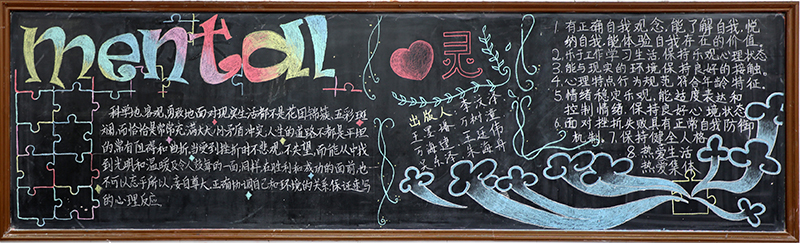 mentall
科学地客观,勇敢地面对现实生活都不是花团锦簇、五彩斑
斓,而恰恰是常常充满大大小小矛盾冲突,人生的道路不都是平坦
的,常有阻碍和曲折,当受到挫折时不悲观、不失望,而能从中找
到光明和温暖及令人鼓舞的一面,同样,在胜利和成功的面前,也
不可以忘乎所以,妄自尊大,正确协调自己和环境的关系保证连写
的心理反应
灵
出版人:
1.有正确自我观念,能了解自我,悦
纳自我,能体验自我存在的价值。
2.乐于工作学习生活,保持乐观心理状态
3.能与现实的环境保持良好的接触。
4.心理特点行为规范符合年龄特征。
5.情绪稳定乐观,能适度表达和
控制情绪,保持良好心境状态
6.面对挫折失败具有正常自我防御
机制。7.保持健全人格
8.热爱生活
热爱集体